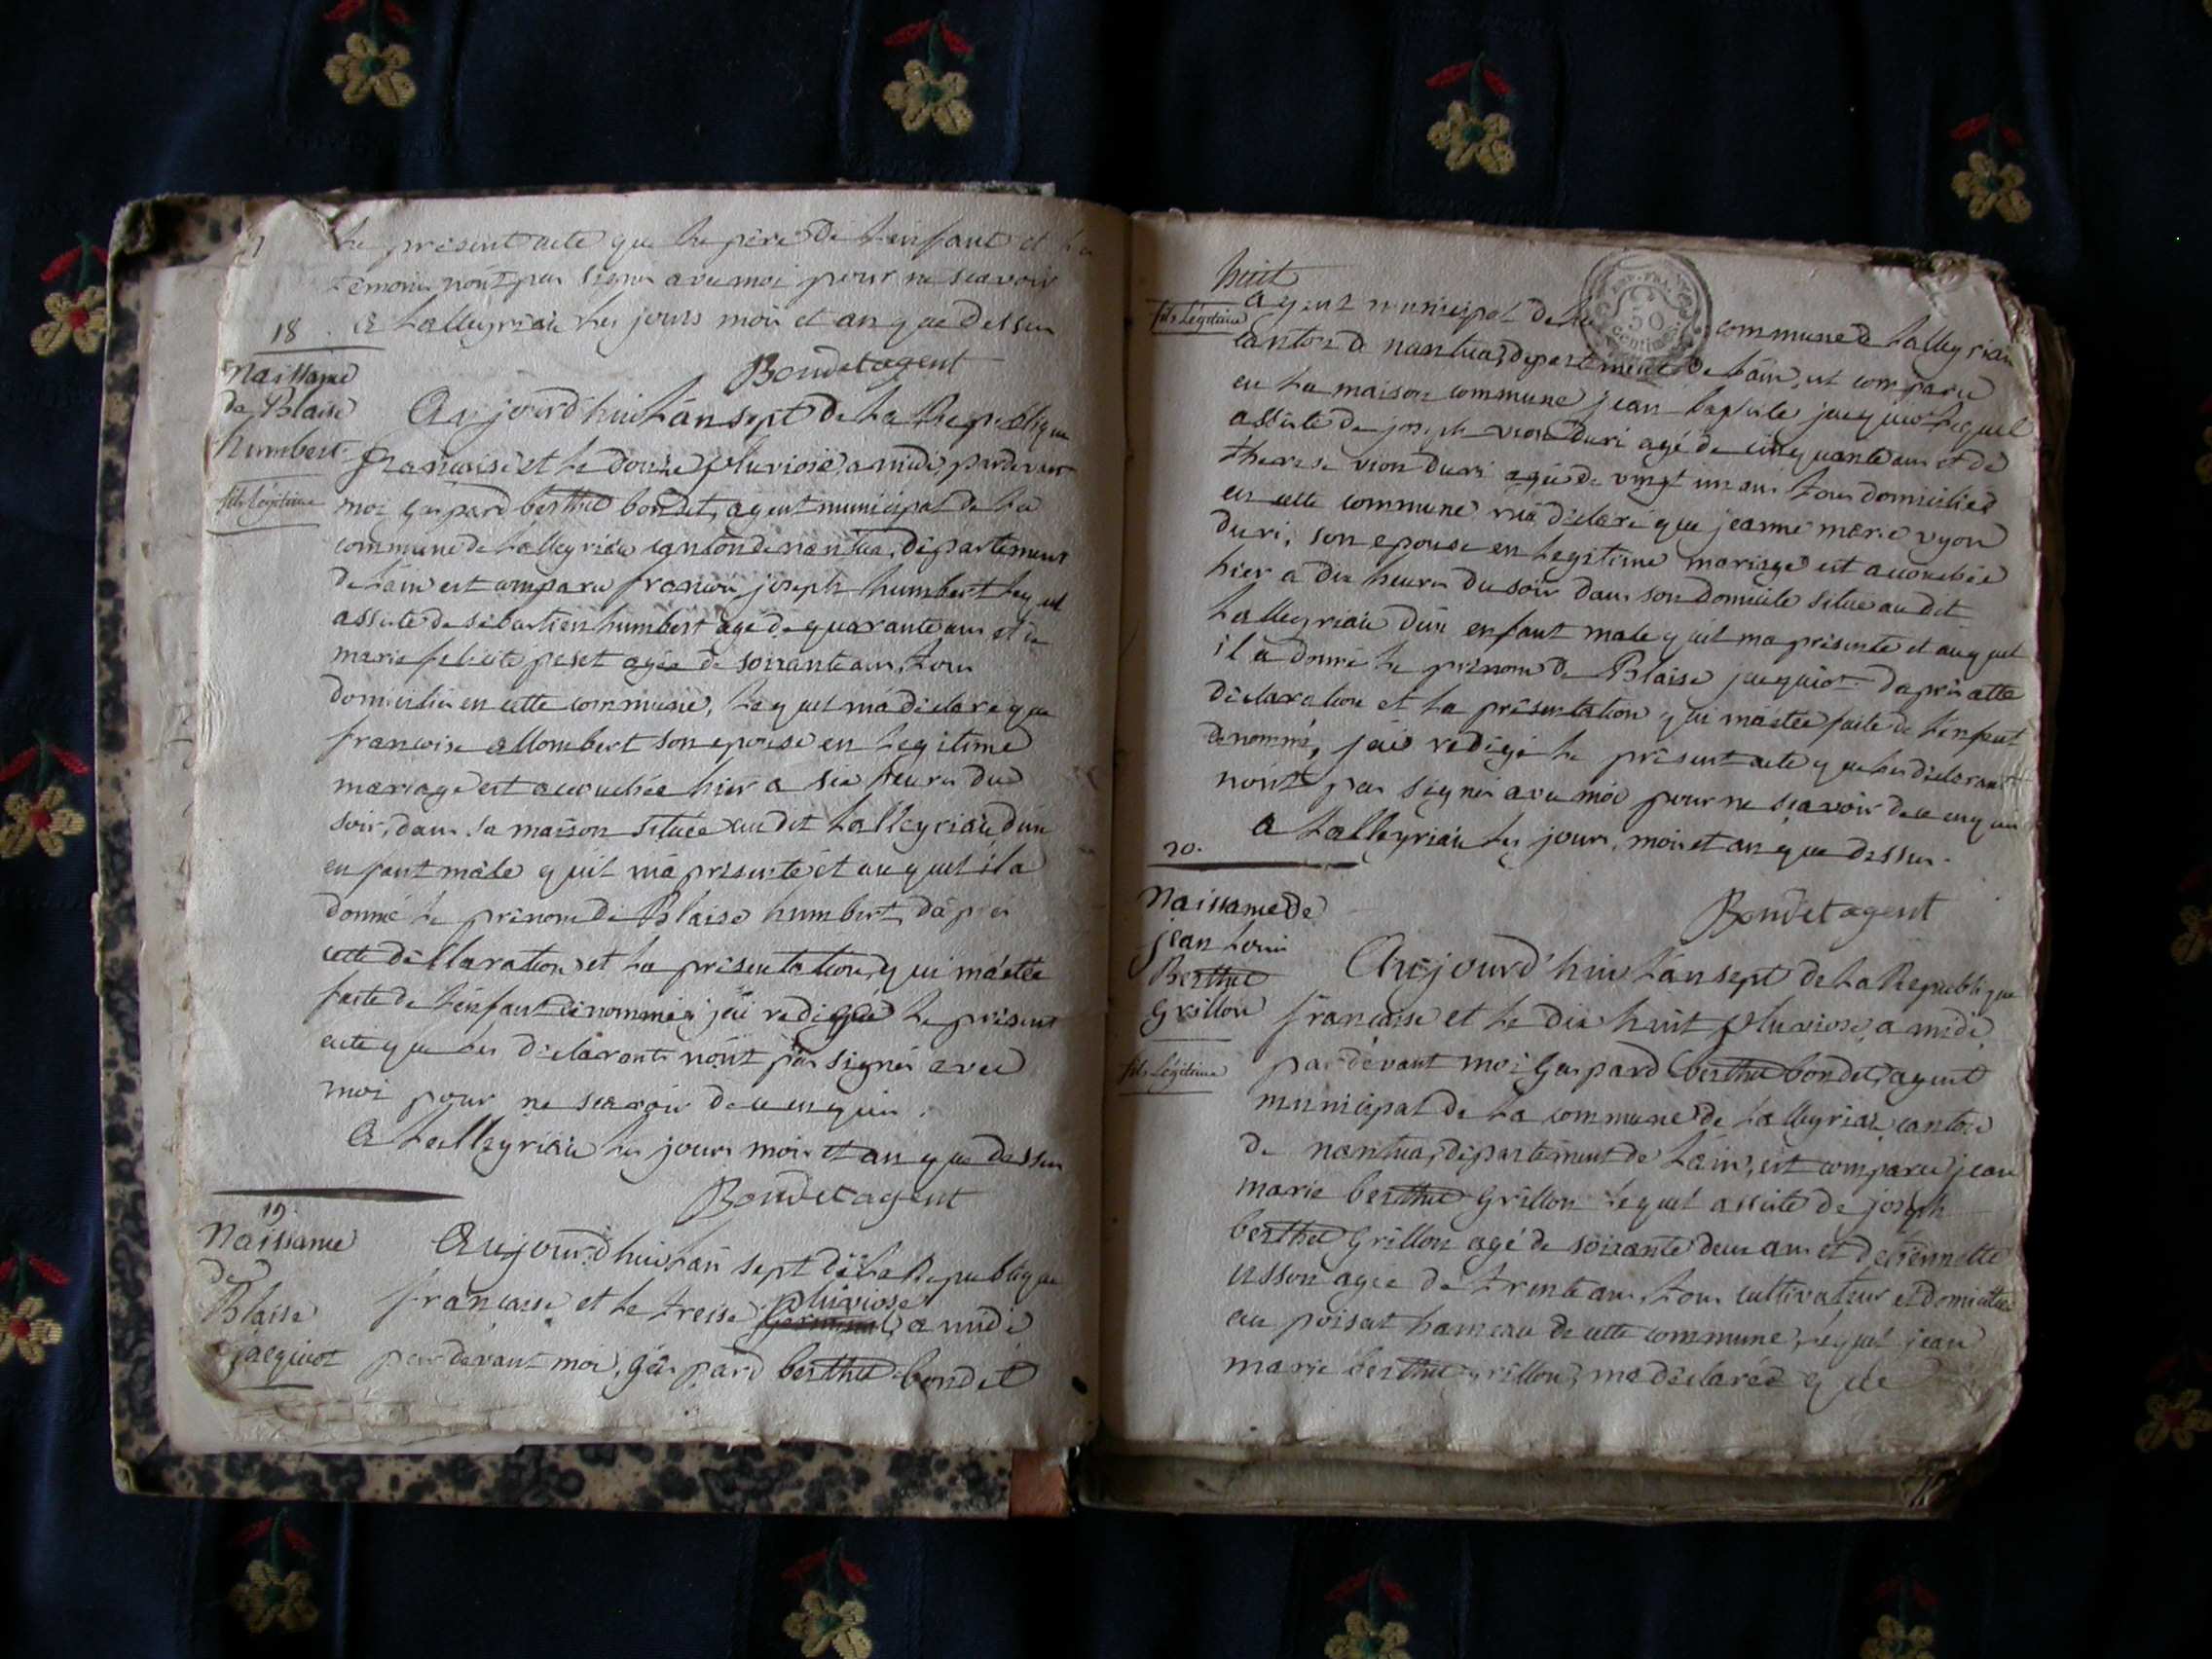 le présent acte que le père de l'enfant et les
temoins n'ont pas signés avec moi pour ne scavoir
a Lalleyriat les jours mois et an que dessus
Bondet agent
18
Naissance
de Blaise
humbert
fils légitime
Aujourd'hui l'an sept de la Republique
francaise et le douze pluviose, a midi, pardevant
moi gaspard berthet bondet, agent municipal de la
commune de Lalleyriat canton de nantua, département
de l'ain est comparu francois joseph humbert lequel
assisté de sébastien humbert agé de quarante ans et de
marie felicité peset agée de soixante ans, tous
domiciliés en cette commune, lequel m'a déclaré que
francoise allombert son epouse en legitime
mariage est accouchée hier a six heures du
soir, dans sa maison située au dit Lalleyriat, d'un
enfant mâle qu'il m'a présenté et auquel il a
donné le prénom de Blaise humbert, d'après
cette déclaration et la présentation qui m'a étée
faite de l'enfant dénommé, j'ai redigé le présent
acte que les déclarants n'ont pas signés avec
moi pour ne scavoir de ce enquis.
a Lalleyriat les jours mois et an que dessus
Bondet agent
19.
Naissance
de
Blaise
jacquiot
Aujourd'hui l'an sept de la Republique
francaise et le treise pluviose a midi
pardevant moi, gaspard berthet bondet
huit
fils légitime
agent municipal de la commune de Lalleyriat
REP. FRA. 50 centimes
canton de nantua, departement de l'ain, est comparu
en la maison commune jean baptiste jacquiot lequel
assisté de joseph vion duri agé de cinquante ans et de
therese vion duri agée de vingt un ans tous domiciliés
en cette commune m'a déclaré que jeanne marie vyon
duri, son epouse en legitime mariage est accouchée
hier a dix heures du soir dans son domicile situé au dit
Lalleyriat d'un enfant male qu'il m'a présenté et auquel
il a donné le prénom de Blaise jacquiot d'après cette
déclaration et la présentation qui m'a étée faite de l'enfant
dénommé, j'ai redigé le présent acte que les déclarants
n'ont pas signés avec moi pour ne scavoir de ce enquis
a Lalleyriat les jours, mois et an que dessus.
Bondet agent
20.
Naissance de
jean Louis
Berthet
Grillon
fils légitime
Aujourd'hui l'an sept de la Republique
francaise et le dix huit pluviose, a midi,
pardevant moi Gaspard berthet bondet, agent
municipal de la commune de Lalleyriat canton
de nantua, département de l'ain, est comparu jean
marie berthet Grillon lequel assisté de joseph
berthet Grillon agé de soixante deux ans et de
usson agée de trente ans, tous cultivateur et domiciliés
au poisat hameau de cette commune, lequel jean
marie berthet grillon, m'a déclaré que